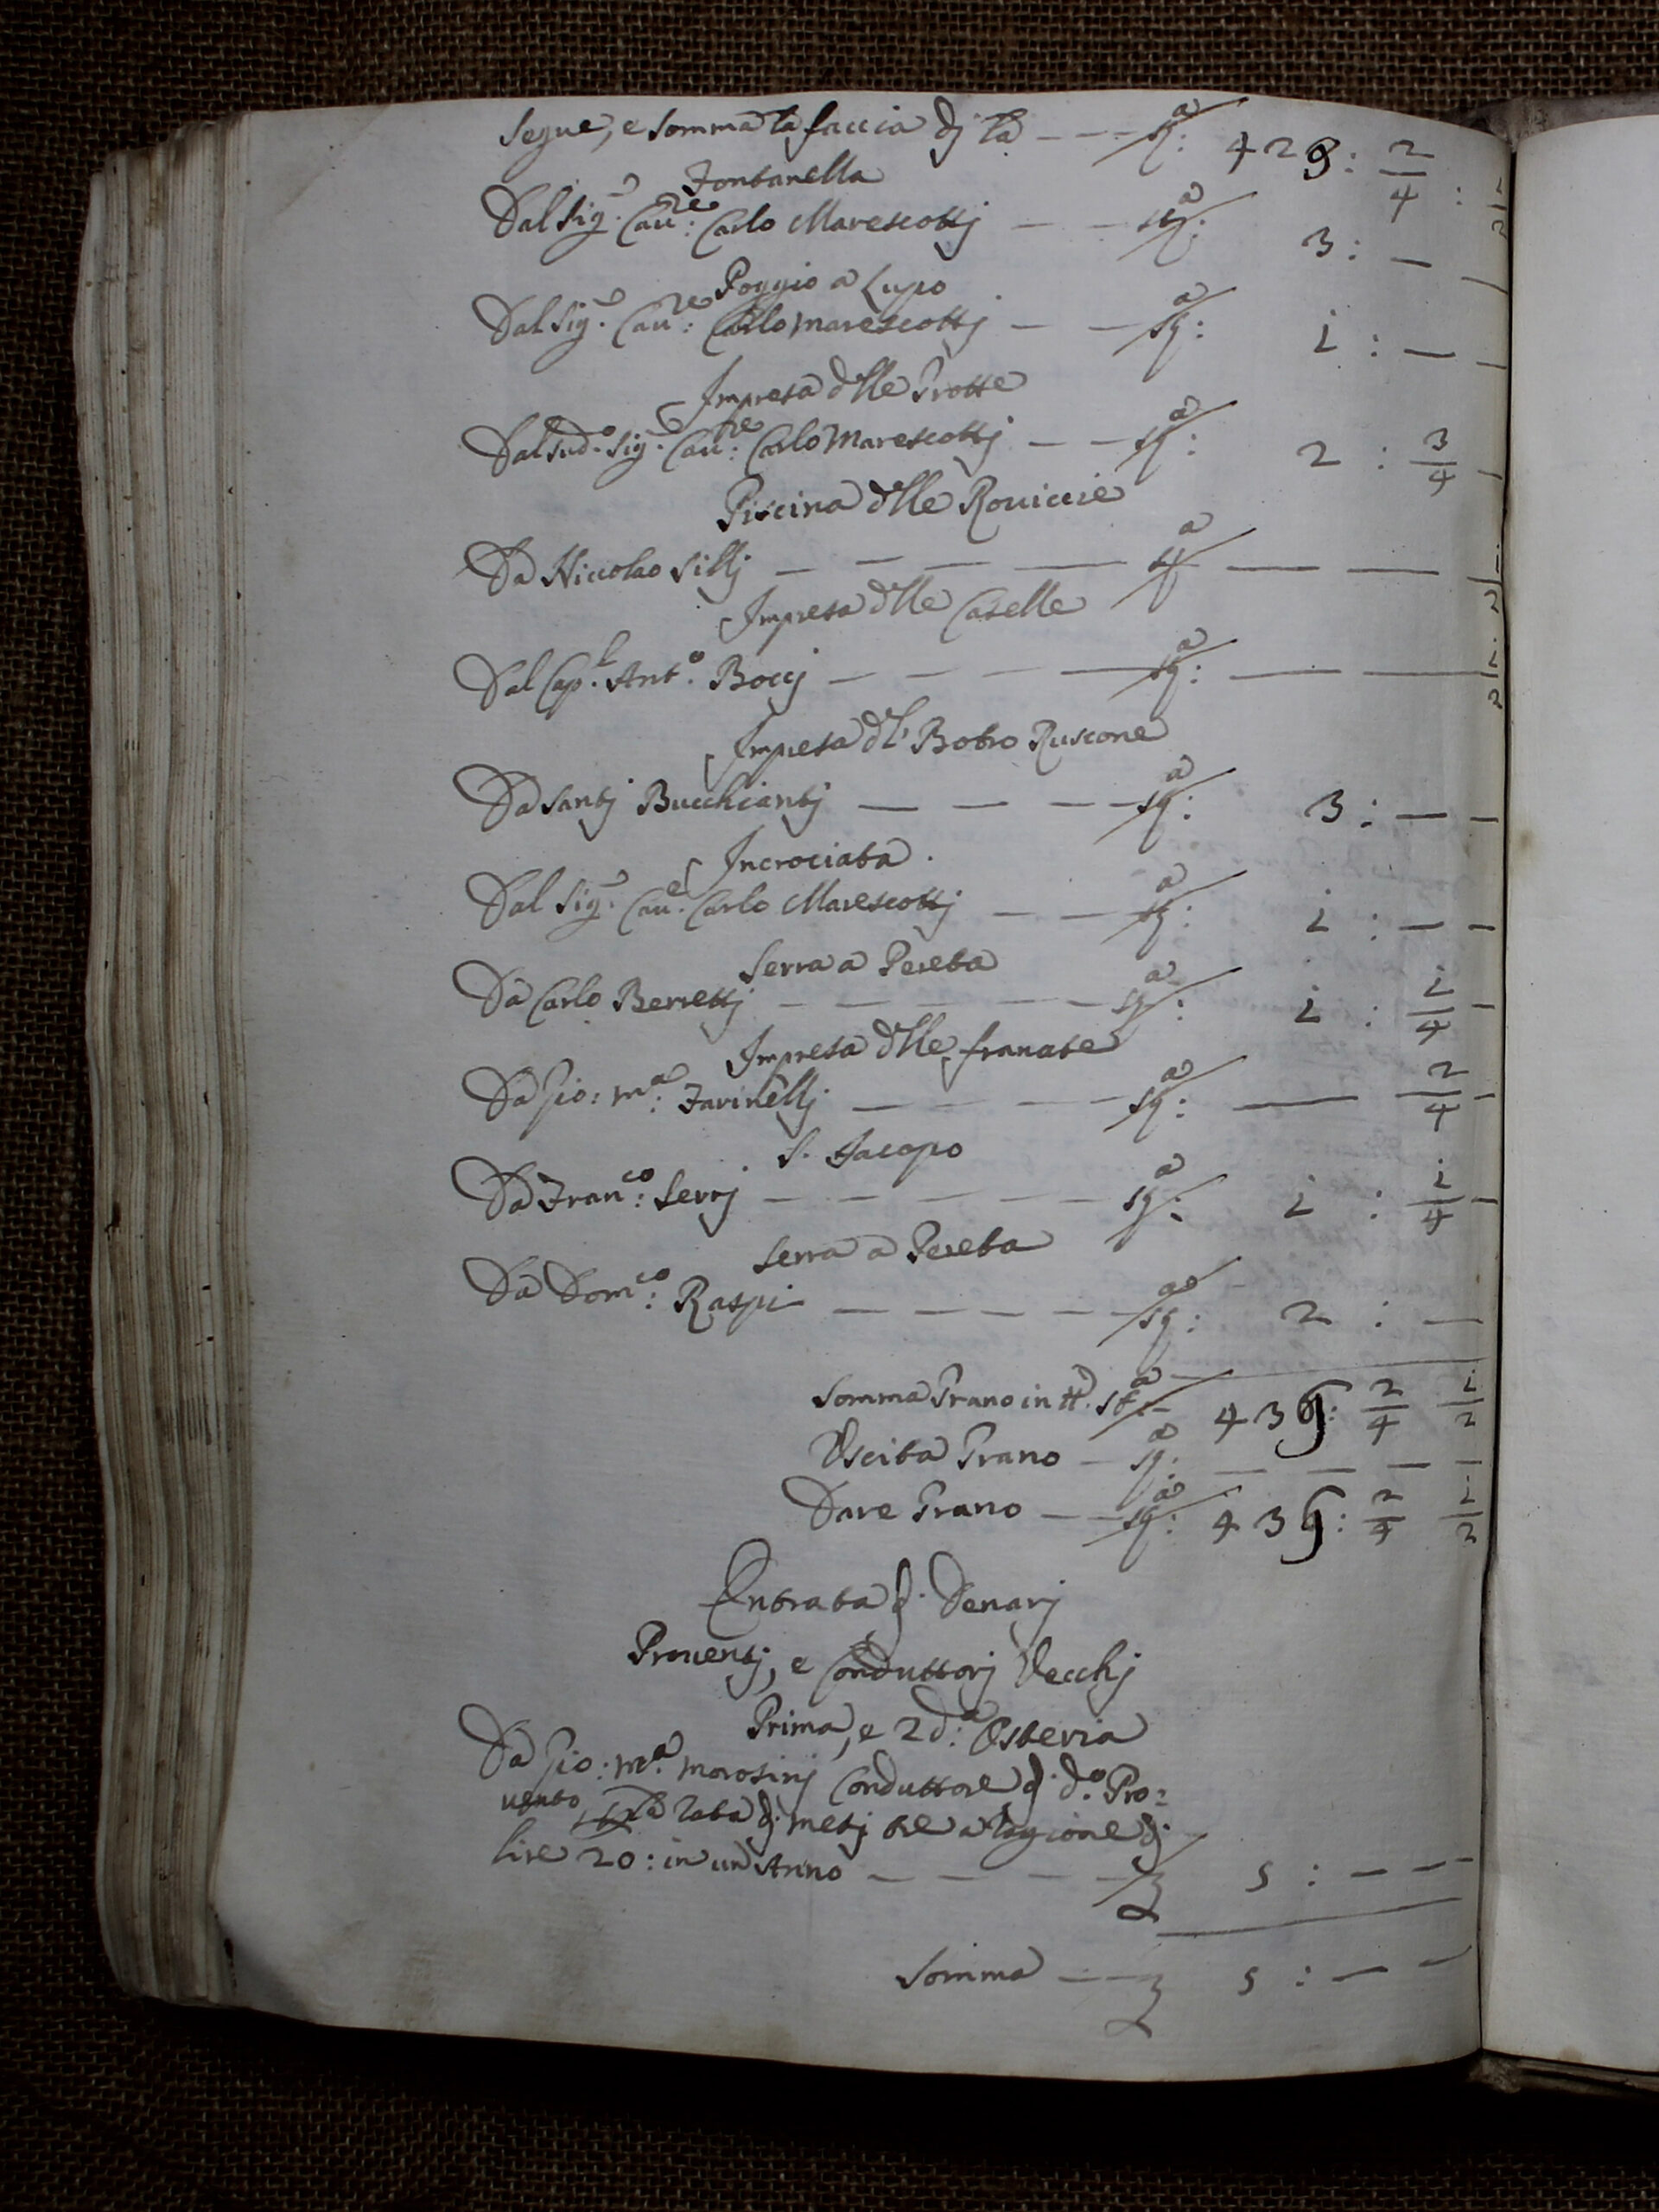 Segue, e somma la faccia dj là — — sta: 423: 2/4 : 1/2
Fontanella
Dal Sigr. Caure: Carlo Marescottj — — sta: 3: — —
Poggio a Lupo
Dal Sigr. Caure: Carlo Marescottj — — sta: 1 : — —
Impresa dlle Grotte
Dal sudo. Sigr. Caure: Carlo Marescottj — — sta: 2 : 3/4 —
Piscina dlle Rouiccie
Da Niccolao Sillj — — — — sta — — 1/2
Impresa dlle Caselle
Dal Cap. Anto. Boccj — — — — sta: — — 1/2
Impresa dl' Botro Ruscone
Da Santj Bucchiantj — — — sta: 3: — —
Incrociata .
Dal Sigr. Caue. Carlo Marescottj — — sta: 1 : — —
Serra a Pereta
Da Carlo Berrettj — — — — — sta: 1 : 1/4 —
Impresa dlle franate
Da Gio: Ma: Farinellj — — — — sta: — 2/4 —
S. Jacopo
Da Franco: Serrj — — — — — sta: 1 : 1/4 —
Serra a Pereta
Da Domco: Raspi — — — — — sta: 2 : —
Somma Grano in tt. sta — 439: 2/4 1/2
Vscita Grano — sta: — — — —
Dare Grano — — sta: 439: 2/4 1/2
Entrata d. Denarj
Prouentj, e Conduttorj Vecchj
Prima, e 2da: Osteria
Da Gio: Ma. Morosinj Conduttore d. do. Pro=
uento, rata dj mesj tre a ragione dj
lire 20: in un Anno — — — — 5 : — — —
Somma — — 5 : — —